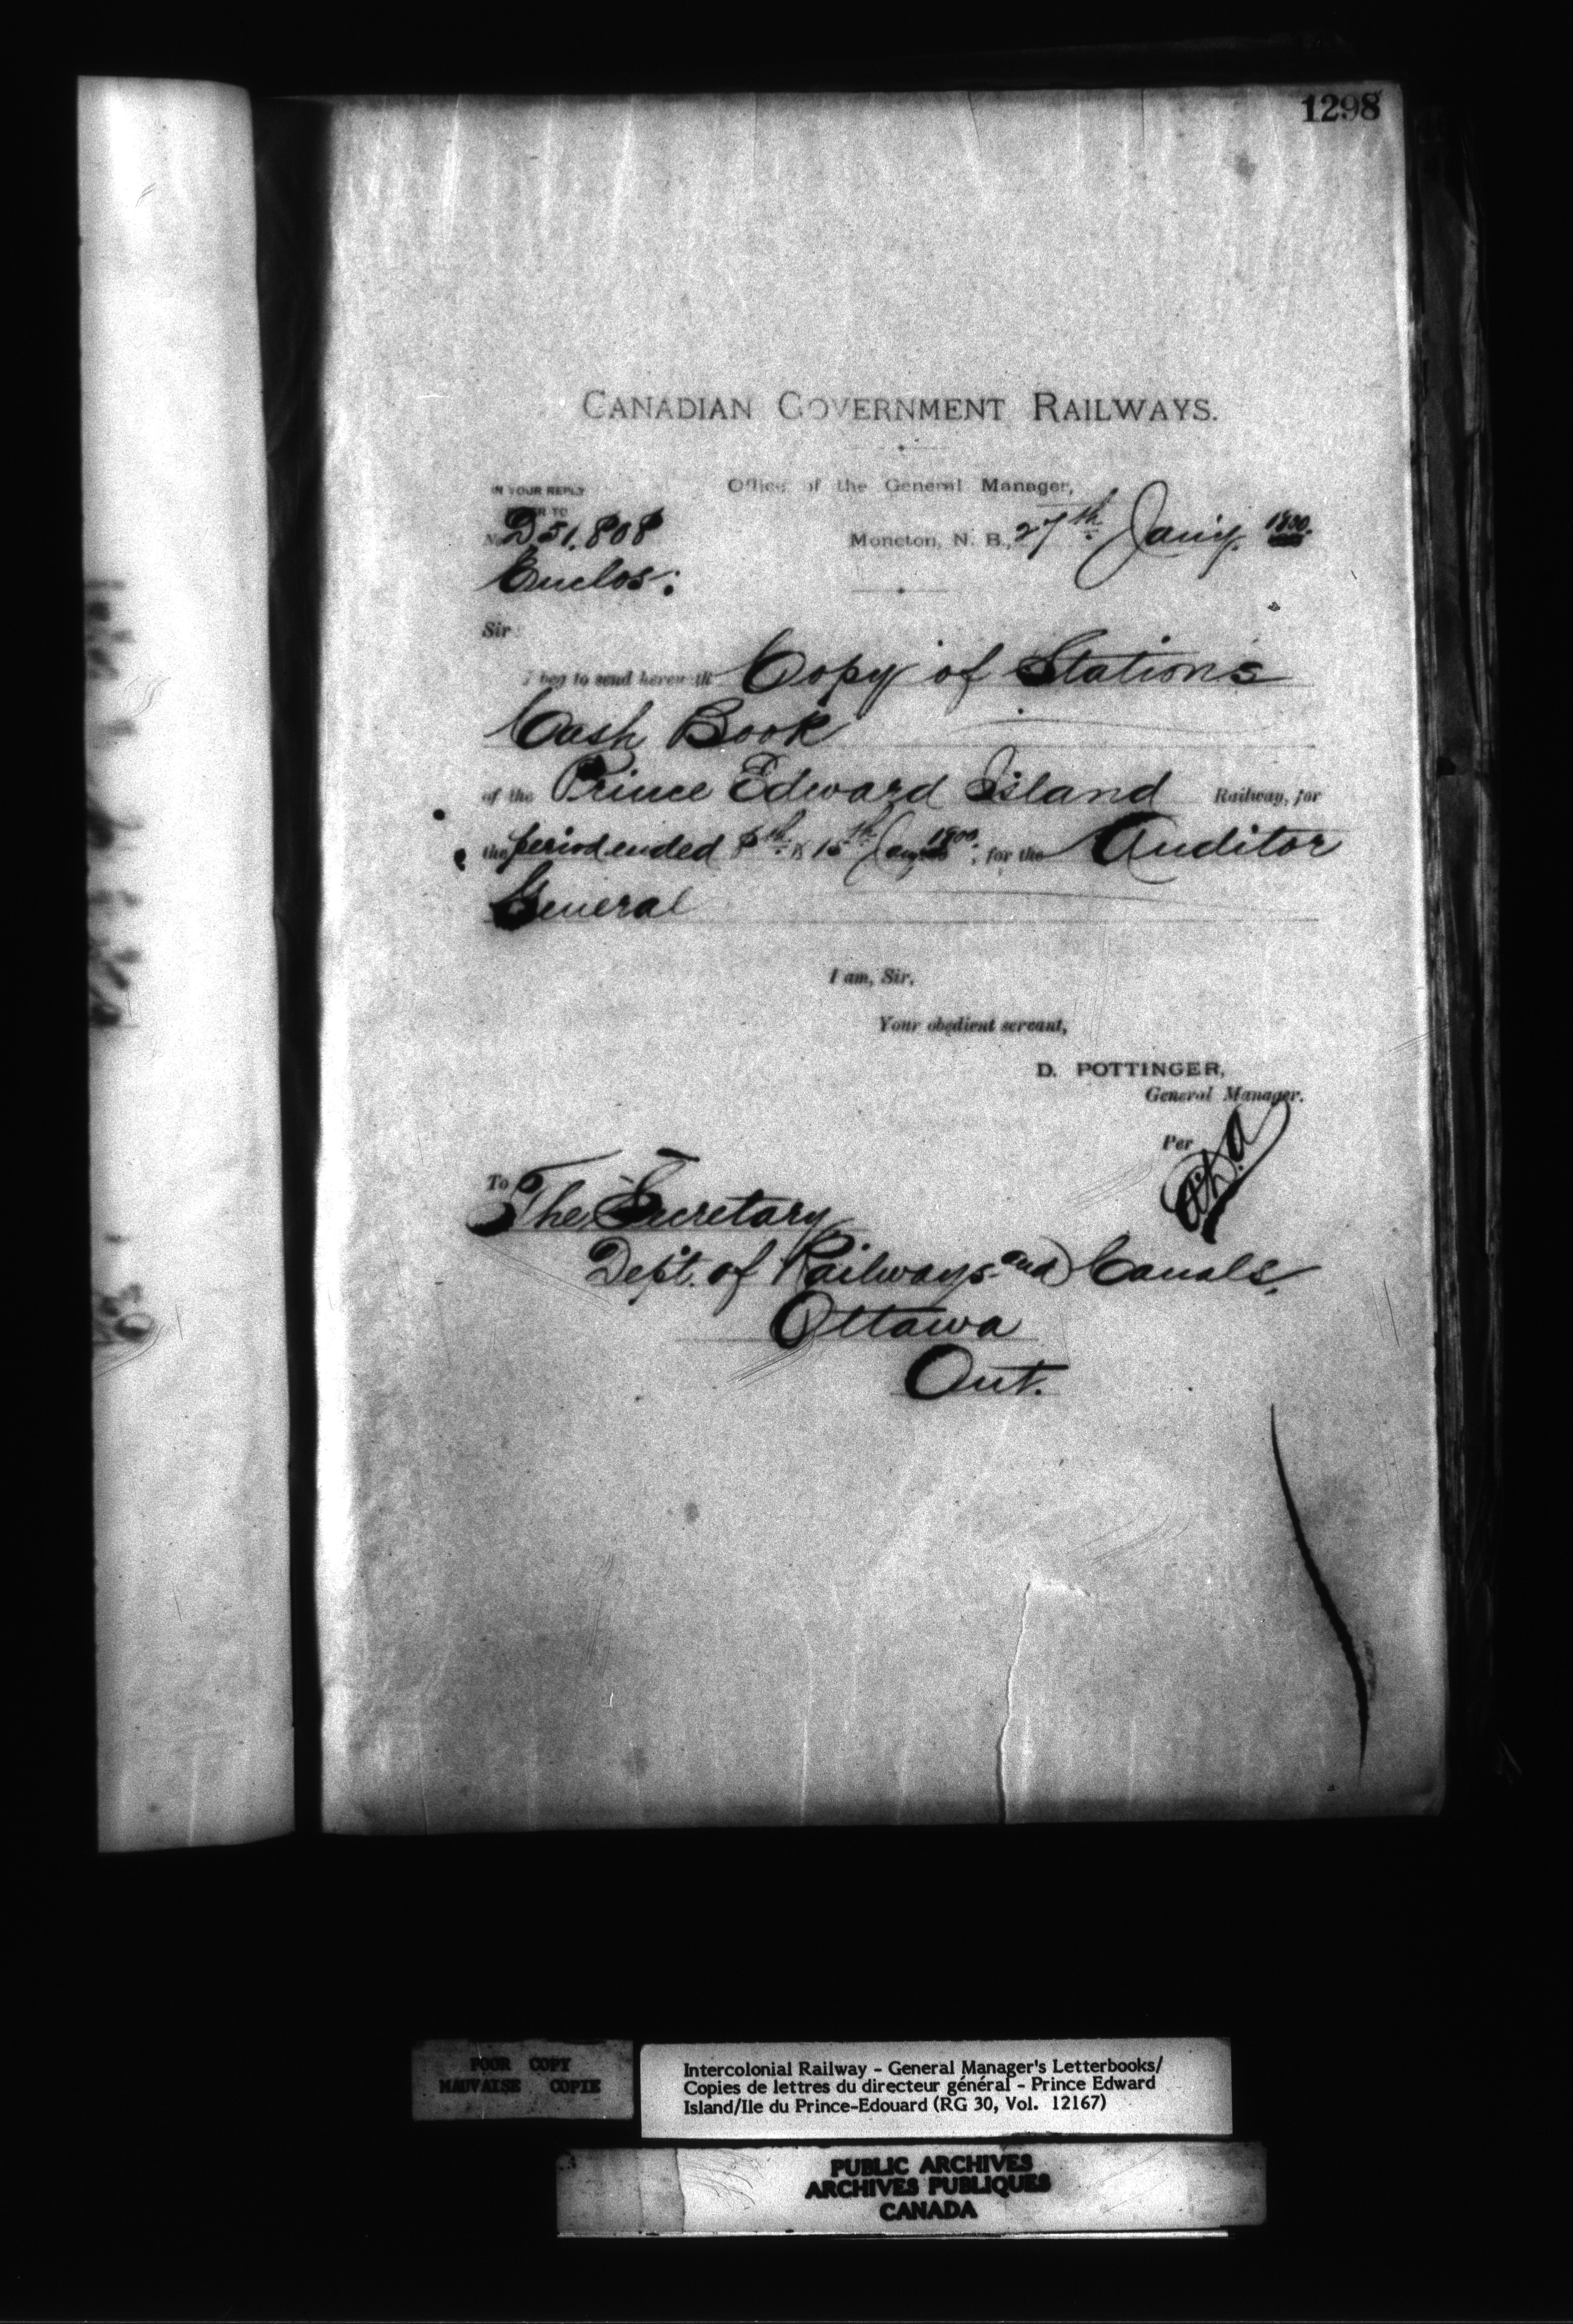 1298
CANADIAN GOVERNMENT RAILWAYS.
Office of the General Manager,
IN YOUR REPLY
REFER TO
No. D51.808
Moncton, N. B., 27th Jan'y. 1900.
Enclos:
Sir:
I beg to send herewith Copy of Stations
Cash Book
of the Prince Edward Island Railway, for
the period ended 8th & 15th Jany 1900, for the Auditor
General
I am, Sir,
Your obedient servant,
D. POTTINGER,
General Manager.
Per
To The Secretary
Dept. of Railways and Canals,
Ottawa
Ont.
POOR COPY
MAUVAISE COPIE
Intercolonial Railway - General Manager's Letterbooks/
Copies de lettres du directeur général - Prince Edward
Island/Ile du Prince-Edouard (RG 30, Vol. 12167)
PUBLIC ARCHIVES
ARCHIVES PUBLIQUES
CANADA